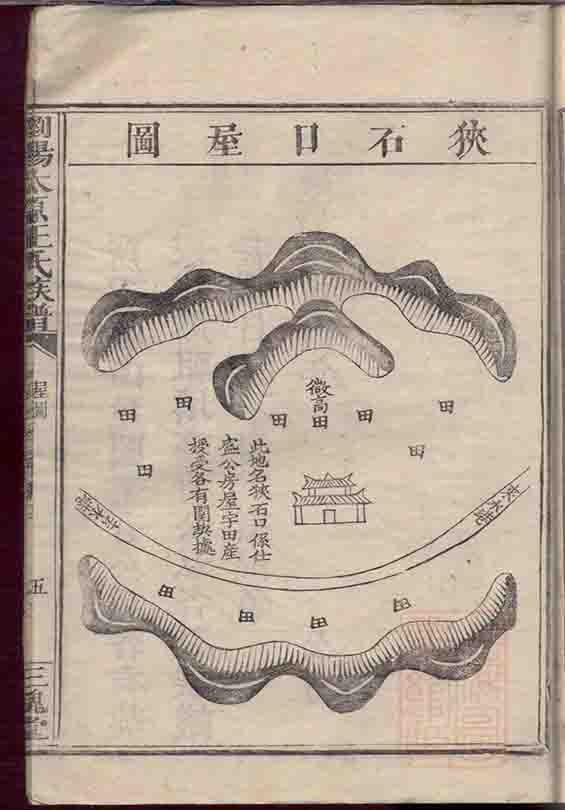 狹石口屋圖
微高
田
田
田
田
田
田
田
田
田
此地名狹石口係仕
盛公房屋宇田產
授受各有關契據
來水港
去水港
田
田
田
田
瀏陽太原王氏族譜
屋圖
五
三槐堂